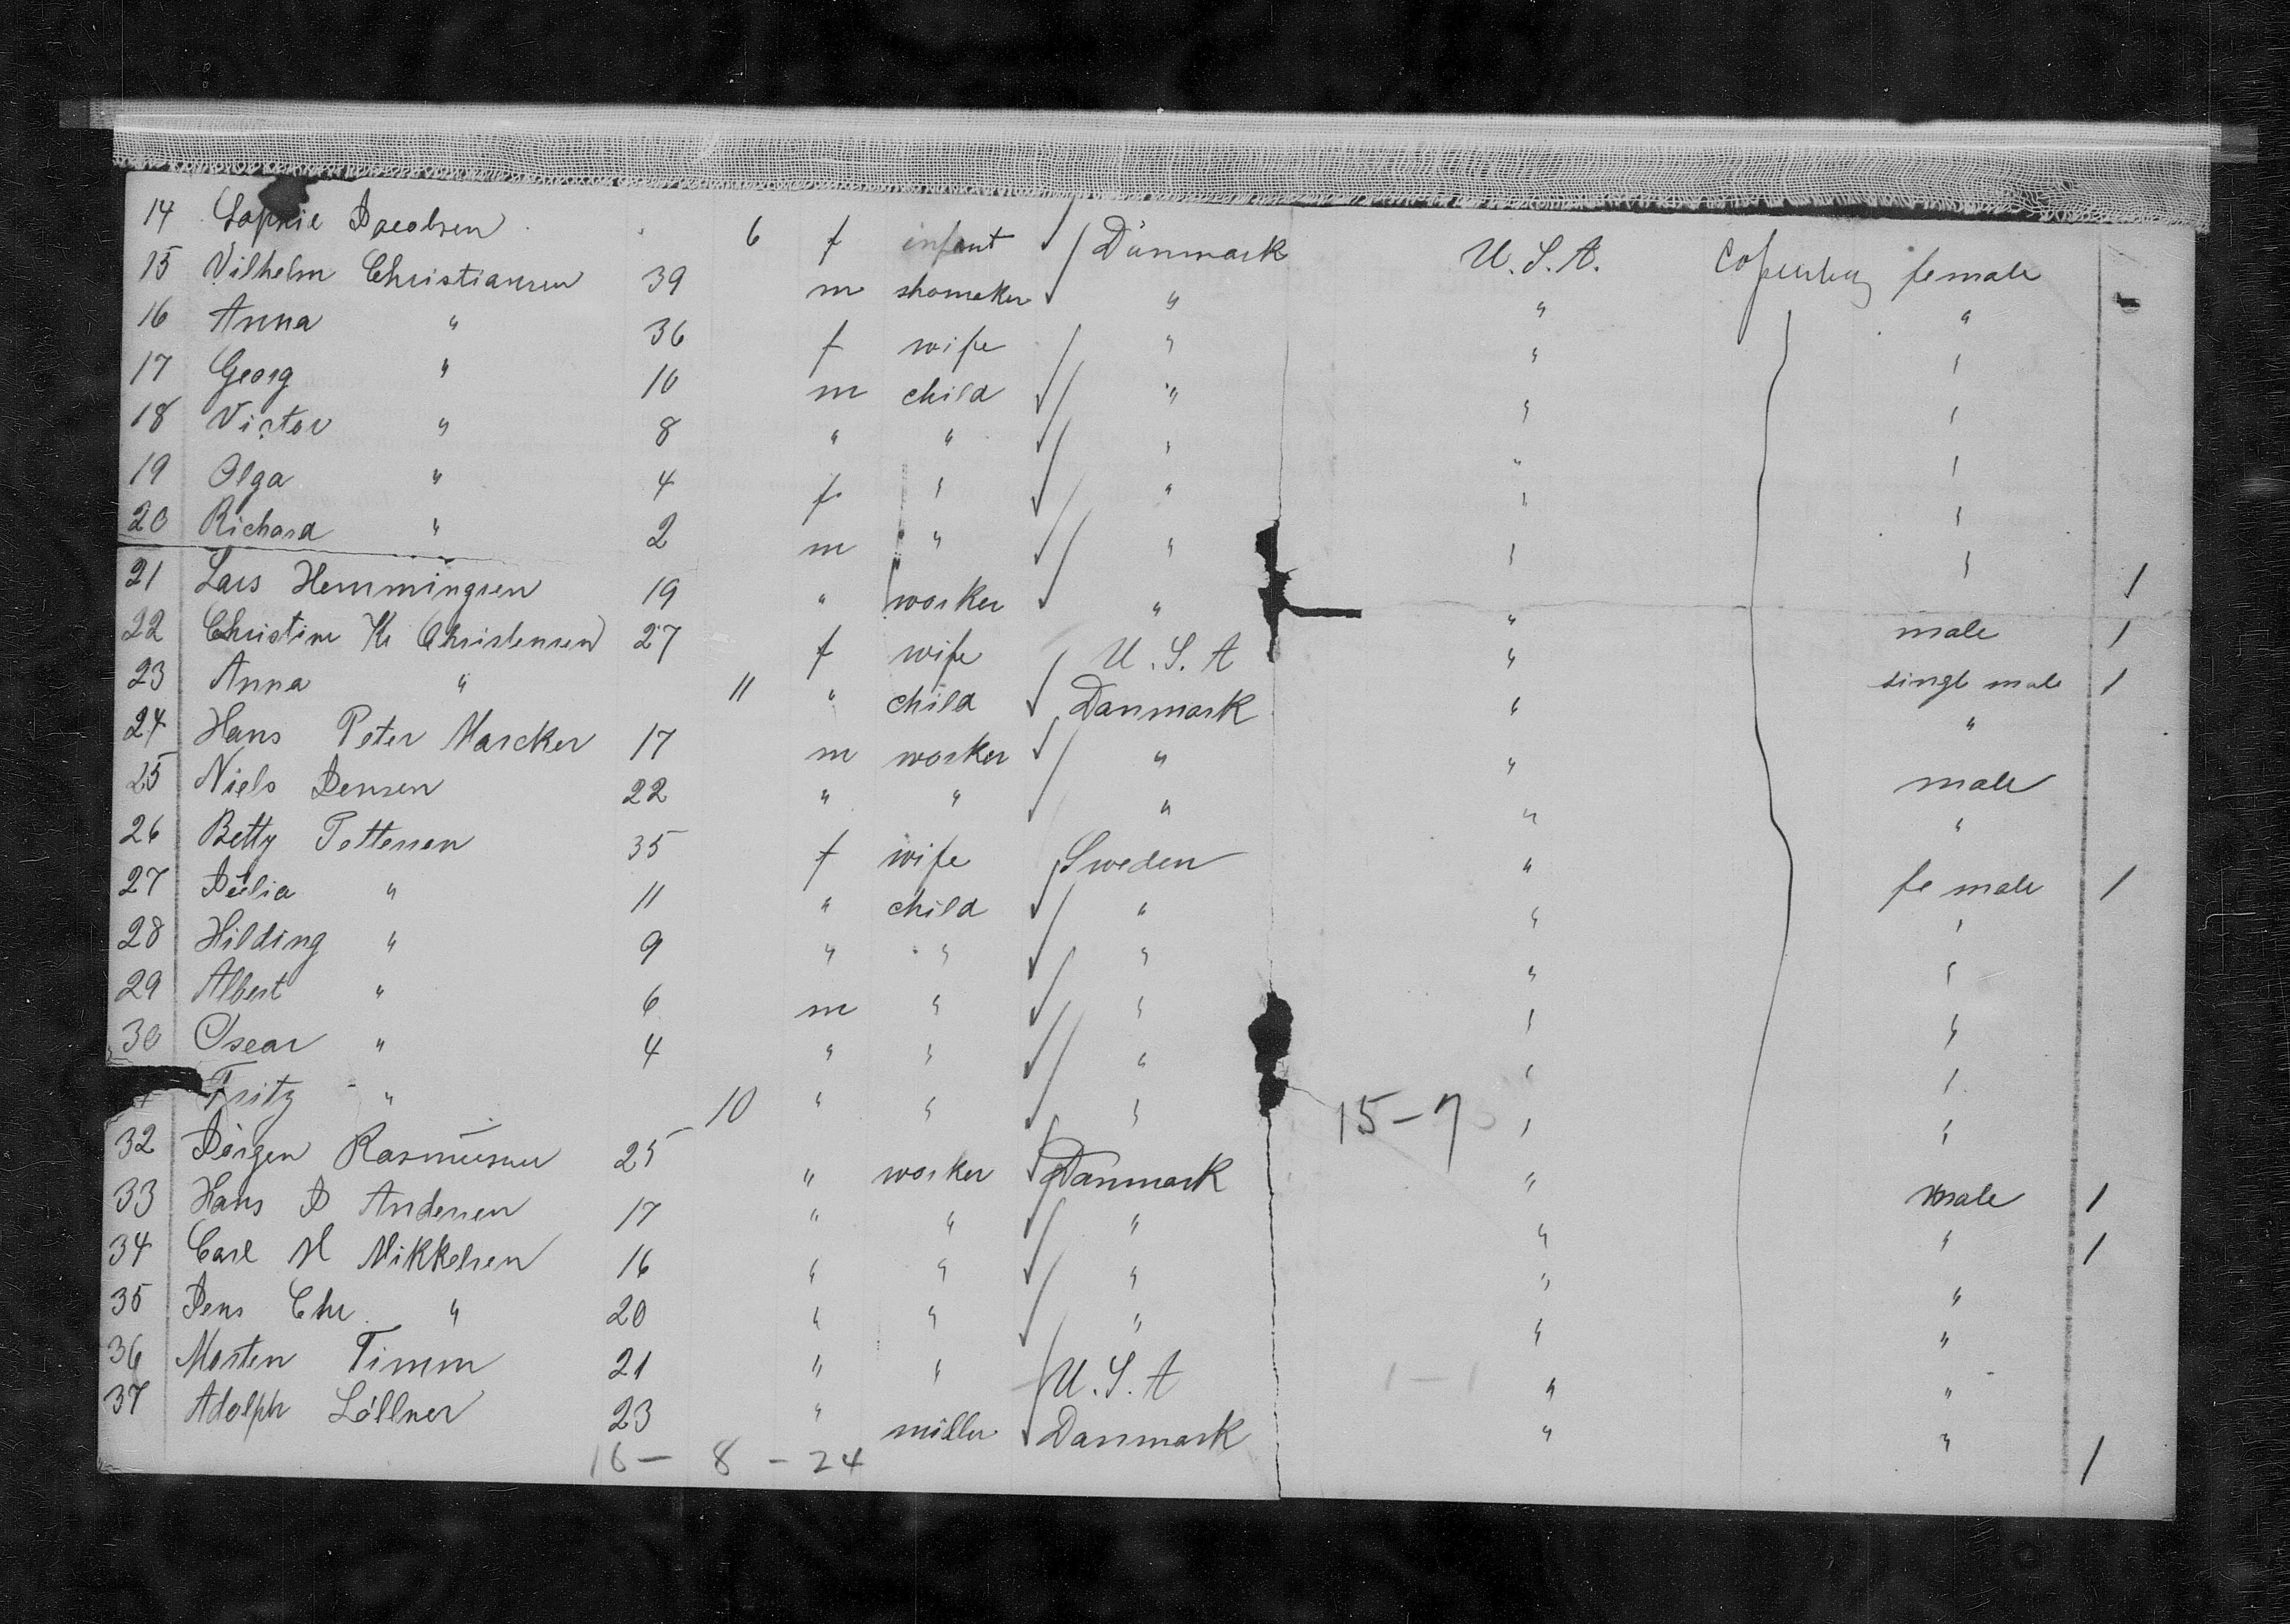 14 Sophie Jacobsen 6 f infant Danmark U.S.A. Copenhag female
15 Vilhelm Christiansen 39 m shomeker " " "
16 Anna " 36 f wife " " "
17 Georg " 10 m child " " "
18 Victor " 8 " " " " "
19 Olga " 4 f " " " "
20 Richard " 2 m " " " "
21 Lars Hemmingsen 19 " worker " " male 1
22 Christine K Christensen 27 f wife U.S.A " singl male 1
23 Anna " 11 " child Danmark " " 1
24 Hans Peter Marcker 17 m worker " " male
25 Niels Jensen 22 " " " " "
26 Betty Pettersen 35 f wife Sweden " female 1
27 Julia " 11 " child " " "
28 Hilding " 9 " " " " "
29 Albert " 6 m " " " "
30 Oscar " 4 " " " " "
Fritz " 10 " " " 15-7 " "
32 Jörgen Rasmüssen 25 " worker Danmark " male 1
33 Hans J Andersen 17 " " " " " 1
34 Carl M Mikkelsen 16 " " " " "
35 Jens Chr. " 20 " " " " "
36 Morten Timm 21 " " U.S.A 1-1 " "
37 Adolph Löllner 23 " miller Danmark " " 1
16 - 8 - 24